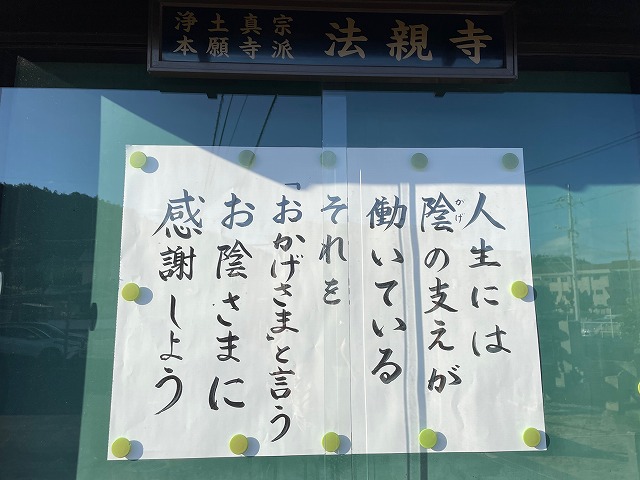 浄土真宗
本願寺派
法親寺
人生には
陰の支えが
かげ
働いている
それを
「おかげさま」と言う
お陰さまに
感謝しよう